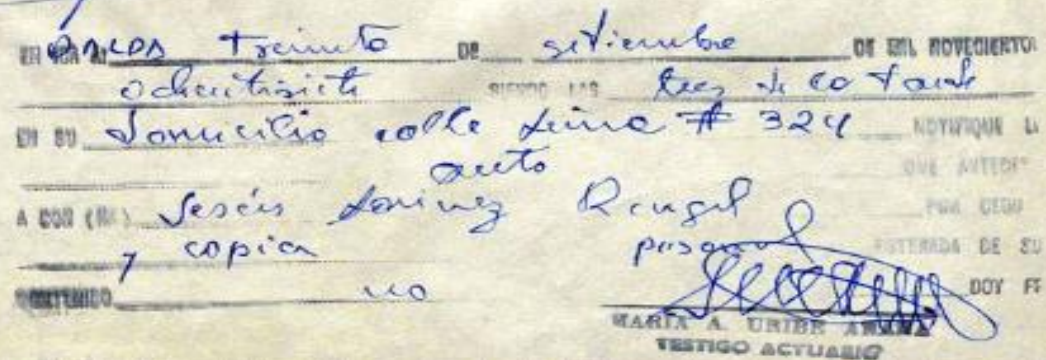 treinta DE setiembre DE MIL NOVECIENTO
SIENDO LAS tres de la tarde
EN SU domicilio calle Lima # 324 NOTIFIQUE
auto QUE ANTECE
A DON Jesús Rengel POR CEDU
y copia personal ENTERADA DE SU
CONTENIDO no DOY FE
MARIA A. URIBE
TESTIGO ACTUARIO